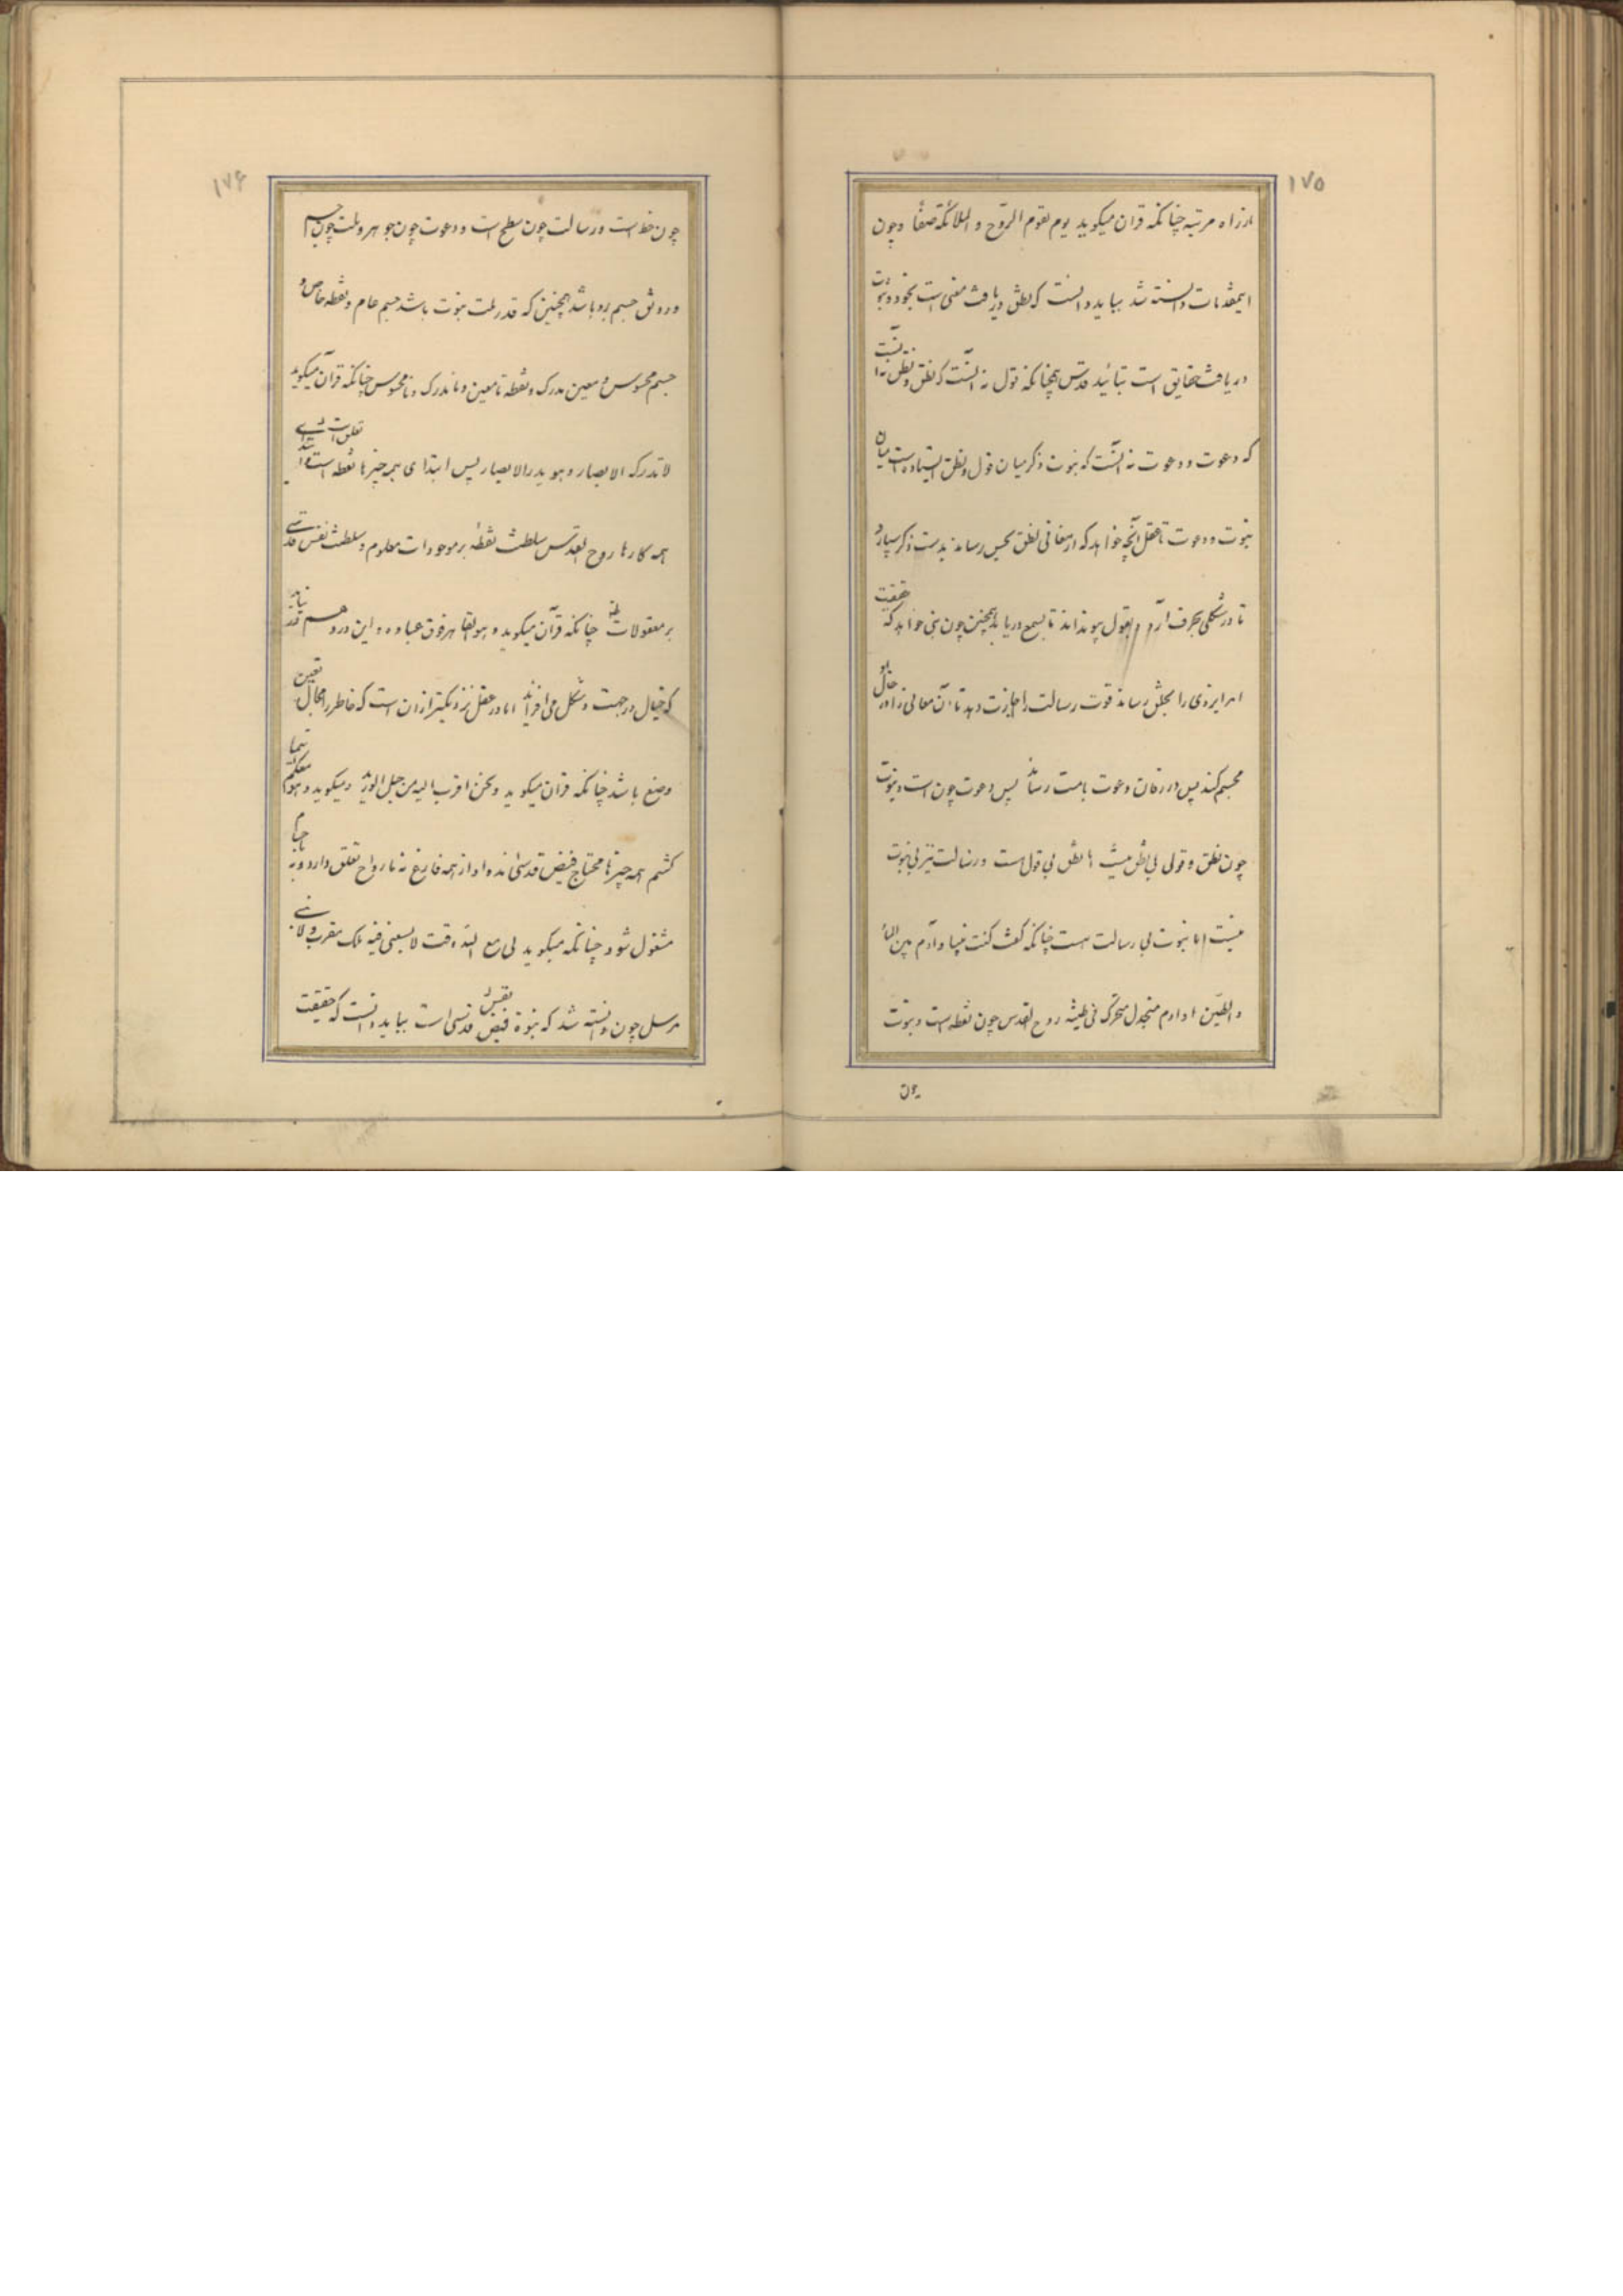 ۱۷۵
ازراه مرتبه چنانکه قران میکوید یوم یقوم الروح و الملائکة صفا وچون
اینمقدمات دانسته شد بباید دانست که نطق دریافت معنی است بخود ونبوت
دریافت حقایق است بتائید قدس همچنانکه قول نه آنست که نطق ونطق نه آنست
که دعوت ودعوت نه آنست که نبوت ذکر میان قول ونطق ایستاده است میان
نبوت ودعوت تا عقل آنچه خواهد که ازمعانی نطق بحس رساند بدست ذکر سپارد
تا درشکلی بحرف آرد وبقول پیونداند تا بسمع دریابد همچنین چون نبی خواهد که حقیقت
امر ایزدی را بخلق رساند قوت رسالت را اجازت دهد تا آن معانی را در خیال او
مجسم کند پس در زمان دعوت بامت رساند پس دعوت چون است ونبوت
چون نطق و قولی بی نطق نیست اما نطق بی قول است ورسالت نیز بی نبوت
نیست اما نبوت بی رسالت هست چنانکه گفت کنت نبیا وآدم بین الماء
والطین اوادم منجدل متحرک فی طینته روح القدس چون نقطه است ونبوت
چون
۱۷۶
چون خط است ورسالت چون سطح است ودعوت چون جوهر وملت چون جسم
ورونق جسم بروباشد همچنین که قدر ملت نبوت باشد جسم عام ونقطه خاص و
جسم محسوس ومعین مدرک ونقطه نامعین ونامدرک ونامحسوس چنانکه قرآن میکوید
لا تدرکه الابصار وهو یدرک الابصار پس ابتدای همه چیزها نقطه است وابتدای
همه کارها روح القدس سلطنت نقطه بر موجودات معلوم وسلطنت نفس قدسی
بر معقولات چنانکه قرآن میکوید وهو القاهر فوق عباده واین در وهم
که خیال درجهت وشکل می افزاید اما در عقل نزدیکتر ازان است که خاطر را مجال تعین
وضع باشد چنانکه قران میکوید ونحن اقرب الیه من حبل الورید ومیکوید وهو معکم اینما
کنتم همه چیزها محتاج فیض قدسی اند واو ازهمه فارغ نه بارواح تعلق دارد ونه باجسام
مشغول شود چنانکه میکوید لی مع الله وقت لا یسعنی فیه ملک مقرب ولا نبی
مرسل چون دانسته شد که نبوة فیض قدسی است بباید دانست که حقیقت